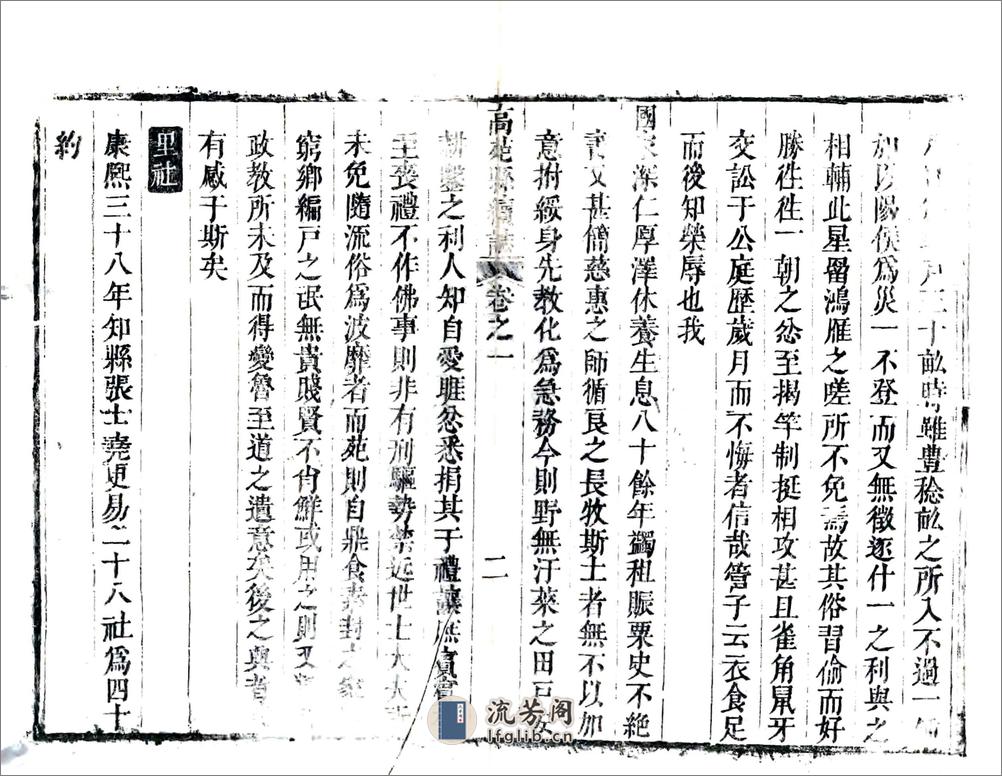 三十畝時雖豐稔畝之所入不過一
加以陽侯為災一不登而又無徵逐什一之利與之
相輔此星罶鴻雁之嗟所不免焉故其俗習偷而好
勝往往一朝之忿至揭竿制挺相攻甚且雀角鼠牙
交訟于公庭歷歲月而不悔者信哉管子云衣食足
而後知榮辱也我
國家深仁厚澤休養生息八十餘年蠲租賑粟史不絕
書又甚簡慈惠之師循良之長牧斯土者無不以加
意拊綏身先教化為急務今則野無汙萊之田戶
高苑縣續誌 卷之一 二
耕鑿之利人知自愛睚忿悉捐其于禮讓庶
至喪禮不作佛事則非有刑驅勢禁近世士大夫
未免隨流俗為波靡者而苑則自鼎食素封之家
窮鄉編戶之氓無貴賤賢不肖鮮或用之則又
政教所未及而得變魯至道之遺意矣後之輿者
有感于斯矣
里社
康熙三十八年知縣張士堯更易二十八社為四十
約
流芳阁
lfglib.cn